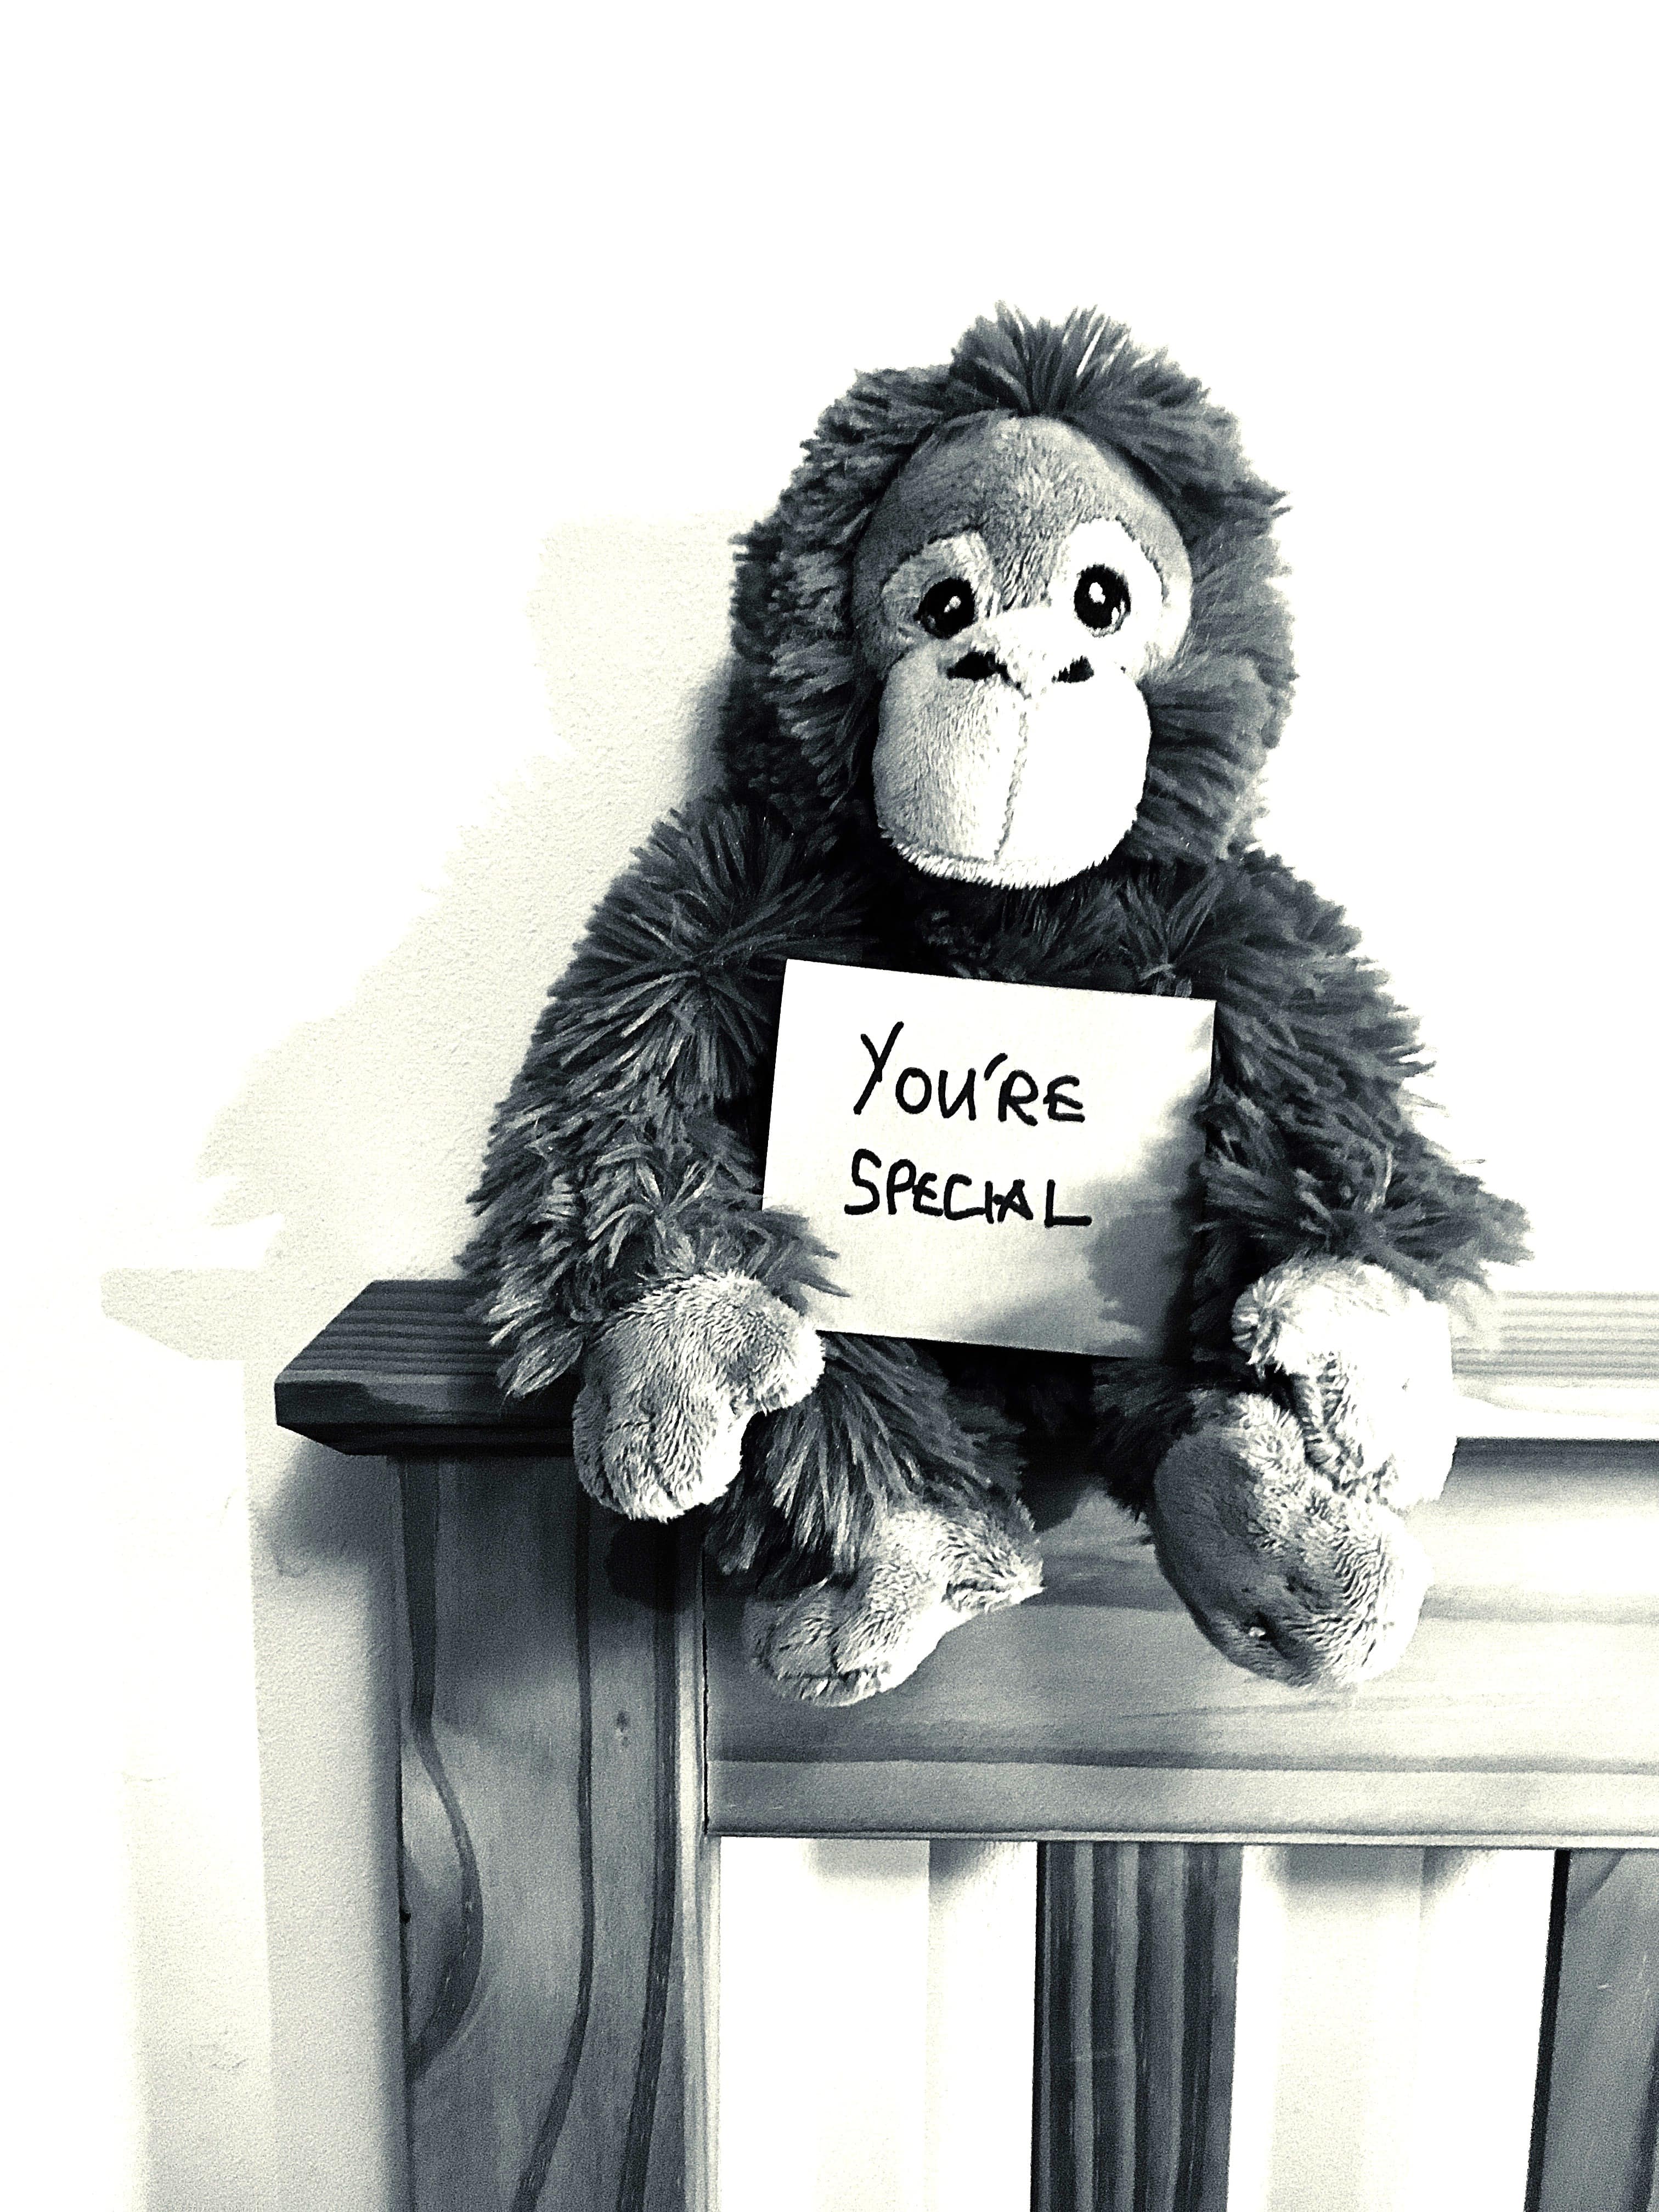 YOU'RE
SPECIAL